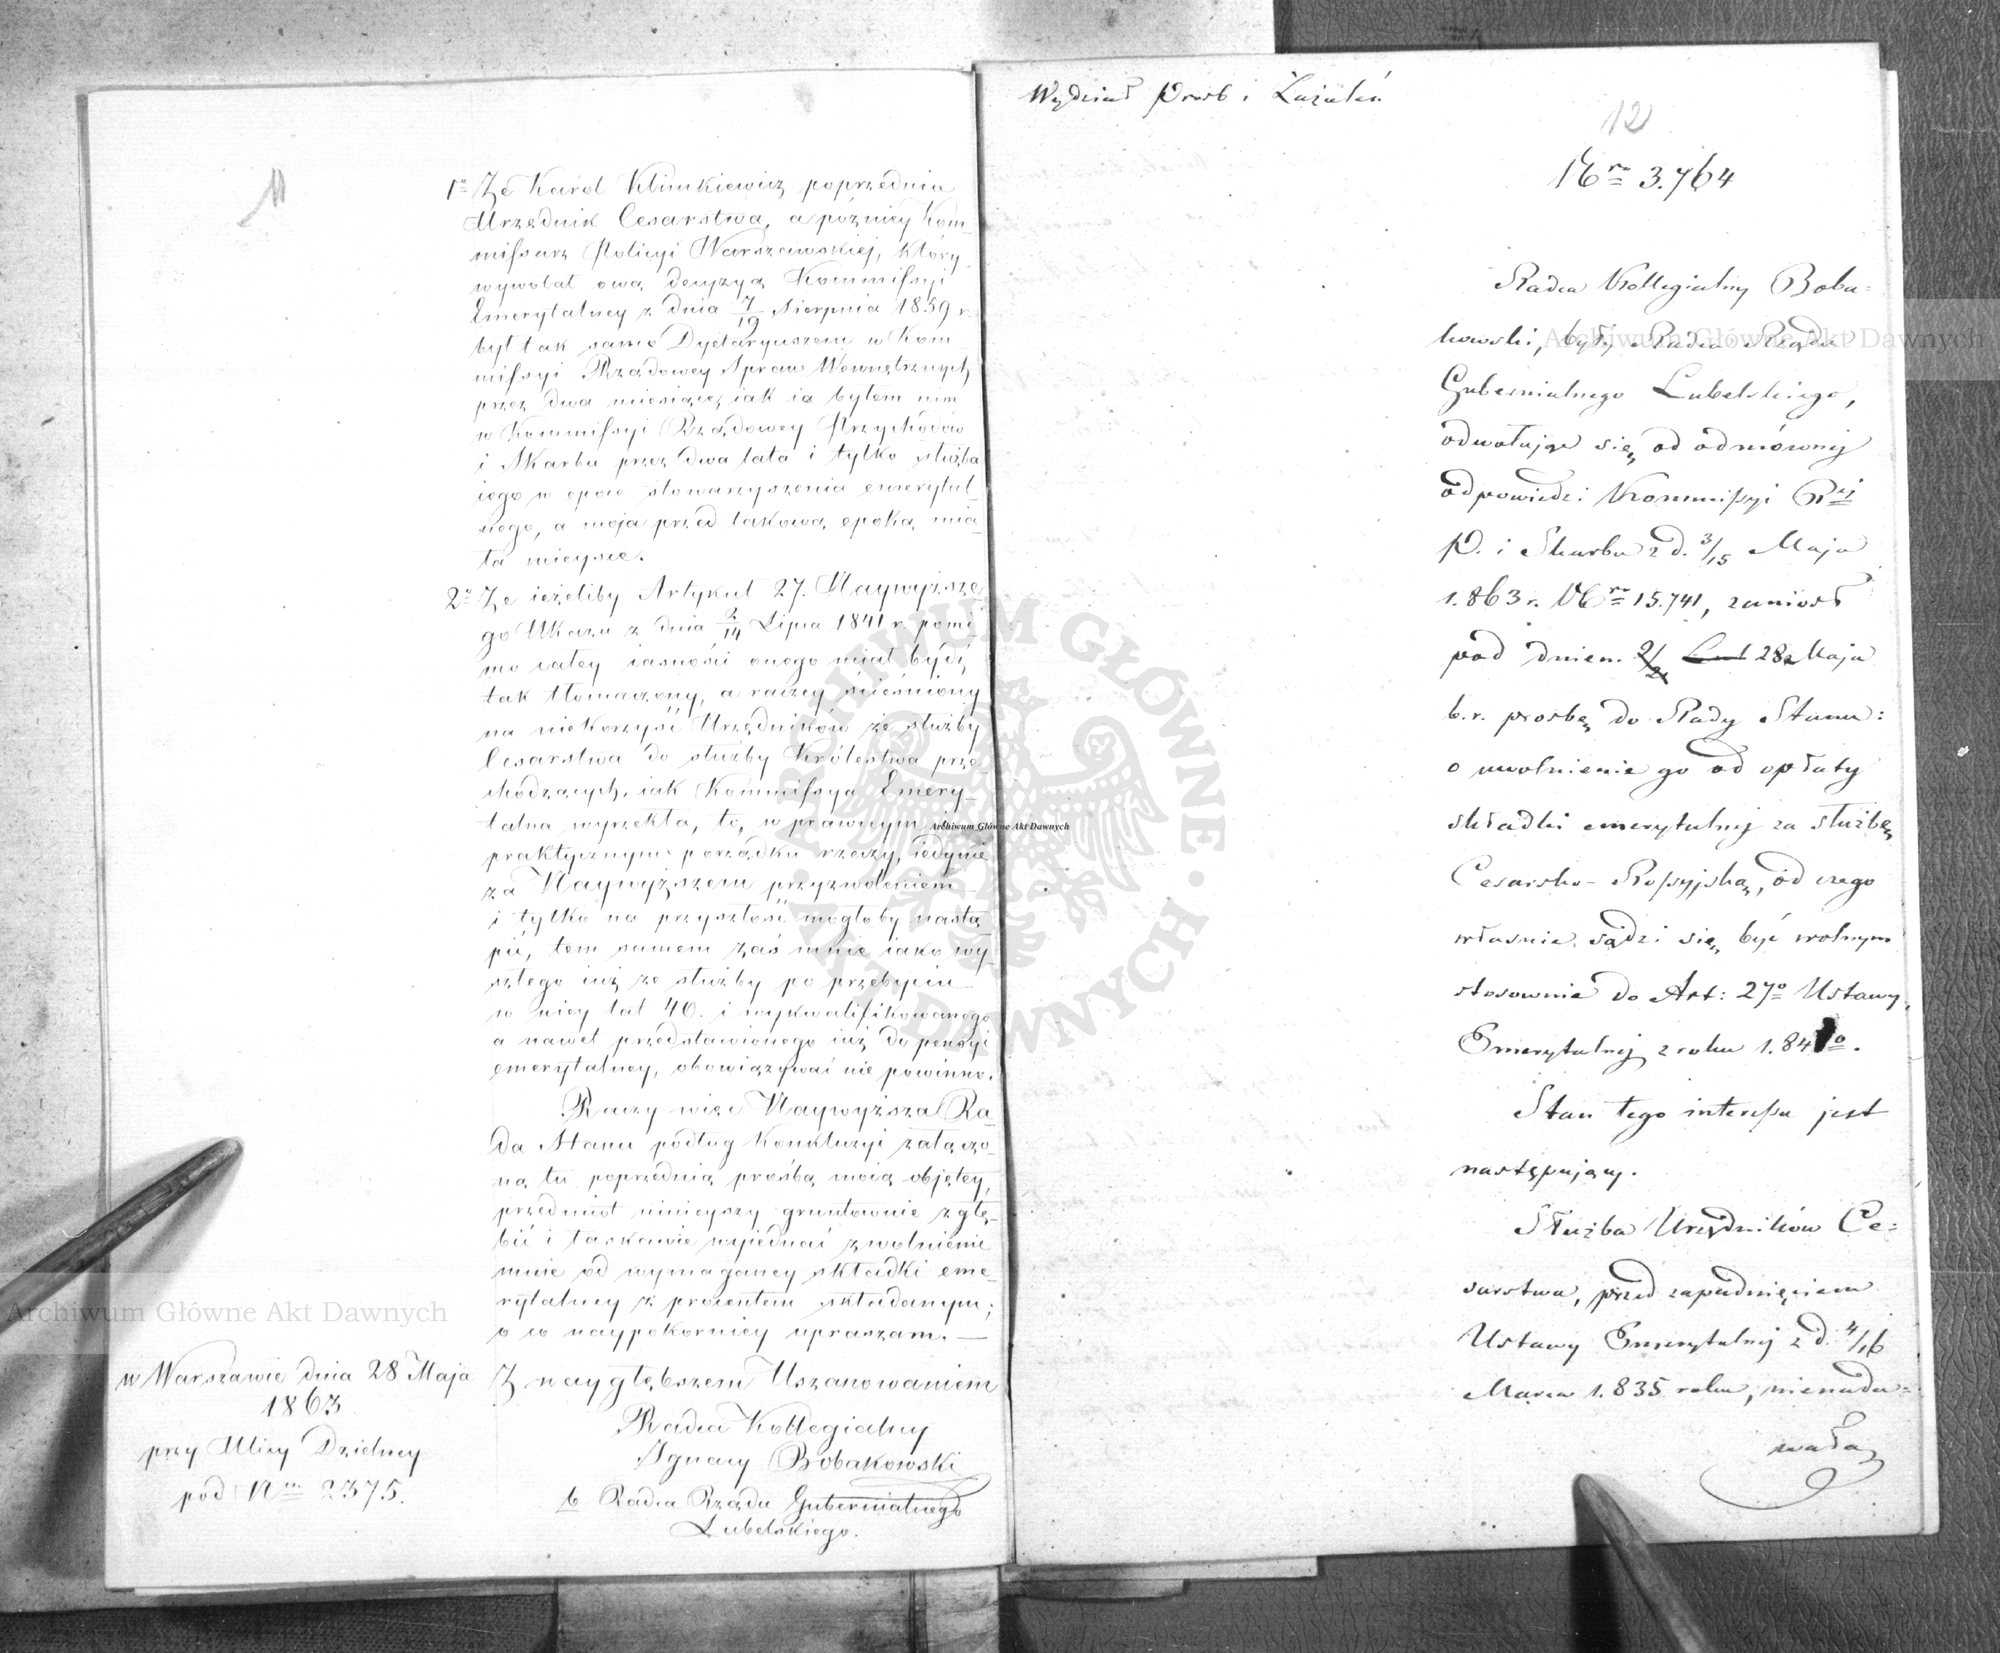 11
1º Że Karol Klimkiewicz poprzednio
Urzędnik Cesarstwa, a póżniey Kom-
missarz Policyi Warszawskiej, który
wywołał ową decyzyą Kommissyi
Emerytalney z dnia 7/19 Sierpnia 1859 r.
był tak samo Dyetaryuszem w Kom-
missyi Rządowey Spraw Wewnętrznych
przez dwa miesiące, iak ia byłem nim
w Kommissyi Rządowey Przychodów
i Skarbu przez dwa lata i tylko służba
iego w epoce stowarzyszenia emerytal-
nego, a moja przed takową epoką mia-
ła mieysce.
2º Że ieżeliby Artykuł 27. Naywyższe-
go Ukazu z dnia 2/14 Lipca 1841 r. pomi-
mo całey iasności onego miał bydź
tak tłomaczony, a raczey ścieśniony
na niekorzyść Urzędników ze służby
Cesarstwa do służby Królestwa prze-
chodzących, iak Kommissya Emery-
talna wyrzekła, to, w prawnym i
praktycznym porządku rzeczy, iedynie
za Naywyższem przyzwoleniem
i tylko na przyszłość mogłoby nastą-
pić, tem samem zaś mnie iako wy-
szłego iuż ze służby po przebyciu
w niey lat 40. i wykwalifikowanego
a nawet przedstawionego iuż do pensyi
emerytalney, obowiązywać nie powinno.
Raczy więc Naywyższa Ra-
da Stanu podług Konkluzyi załączo-
ną tu poprzednią prośbą moią objętey,
przedmiot ninieyszy gruntownie zgłę-
bić i łaskawie wyiednać zwolnienie
mnie od wymaganey składki eme-
rytalney z procentem składanym;
o co naypokorniey upraszam. —
w Warszawie dnia 28 Maja
1863
przy Ulicy Dzielney
pod Nrm 2375.
Z naygłębszem Uszanowaniem
Radca Kollegialny
Ignacy Bobakowski
b Radca Rządu Gubernialnego
Lubelskiego.
Wydział Prośb i Zażaleń
12
Nro 3.764
Radca Kollegialny Boba=
kowski, były Radca Rządu
Gubernialnego Lubelskiego,
odwołując się od odmównej
odpowiedzi Kommissyi Rej
P. i Skarbu z d. 3/15 Maja
1.863 r. Nro 15.741, zaniosł
pod dniem 28 Maja
b.r. prosbę do Rady Stanu:
o uwolnienie go od opłaty
składki emerytalnej za służbę
Cesarsko-Rossyjską, od czego
własnie sądzi się być wolnym
stosownie do Art: 27º Ustawy
Emerytalnej z roku 1.841º.
Stan tego interessu jest
następujący.
Służba Urzędników Ce=
sarstwa, przed zapadnięciem
Ustawy Emerytalnej z d. 4/16
Marca 1.835 roku, nienada=
wała
Archiwum Główne Akt Dawnych
Archiwum Główne Akt Dawnych
Archiwum Główne Akt Dawnych
ARCHIWUM GŁÓWNE · AKT DAWNYCH ·